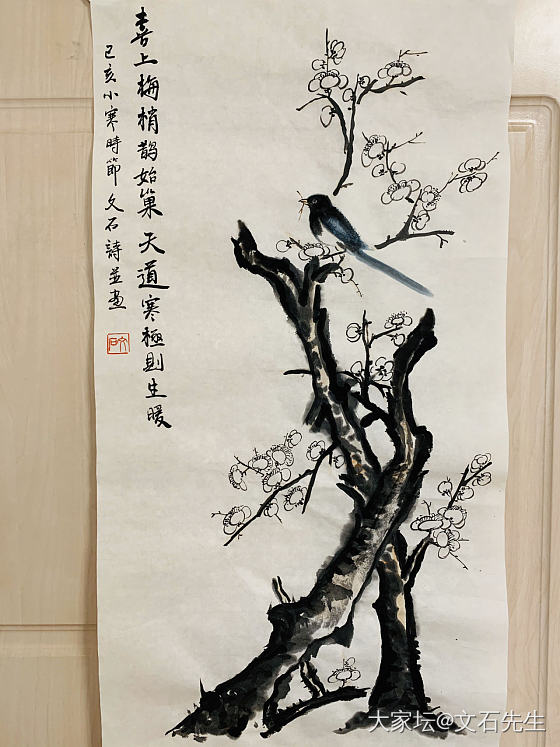 喜上梅梢鹊始巢 天道寒極則生暖
己亥小寒時節 文石詩並畫
文石
大家坛@文石先生